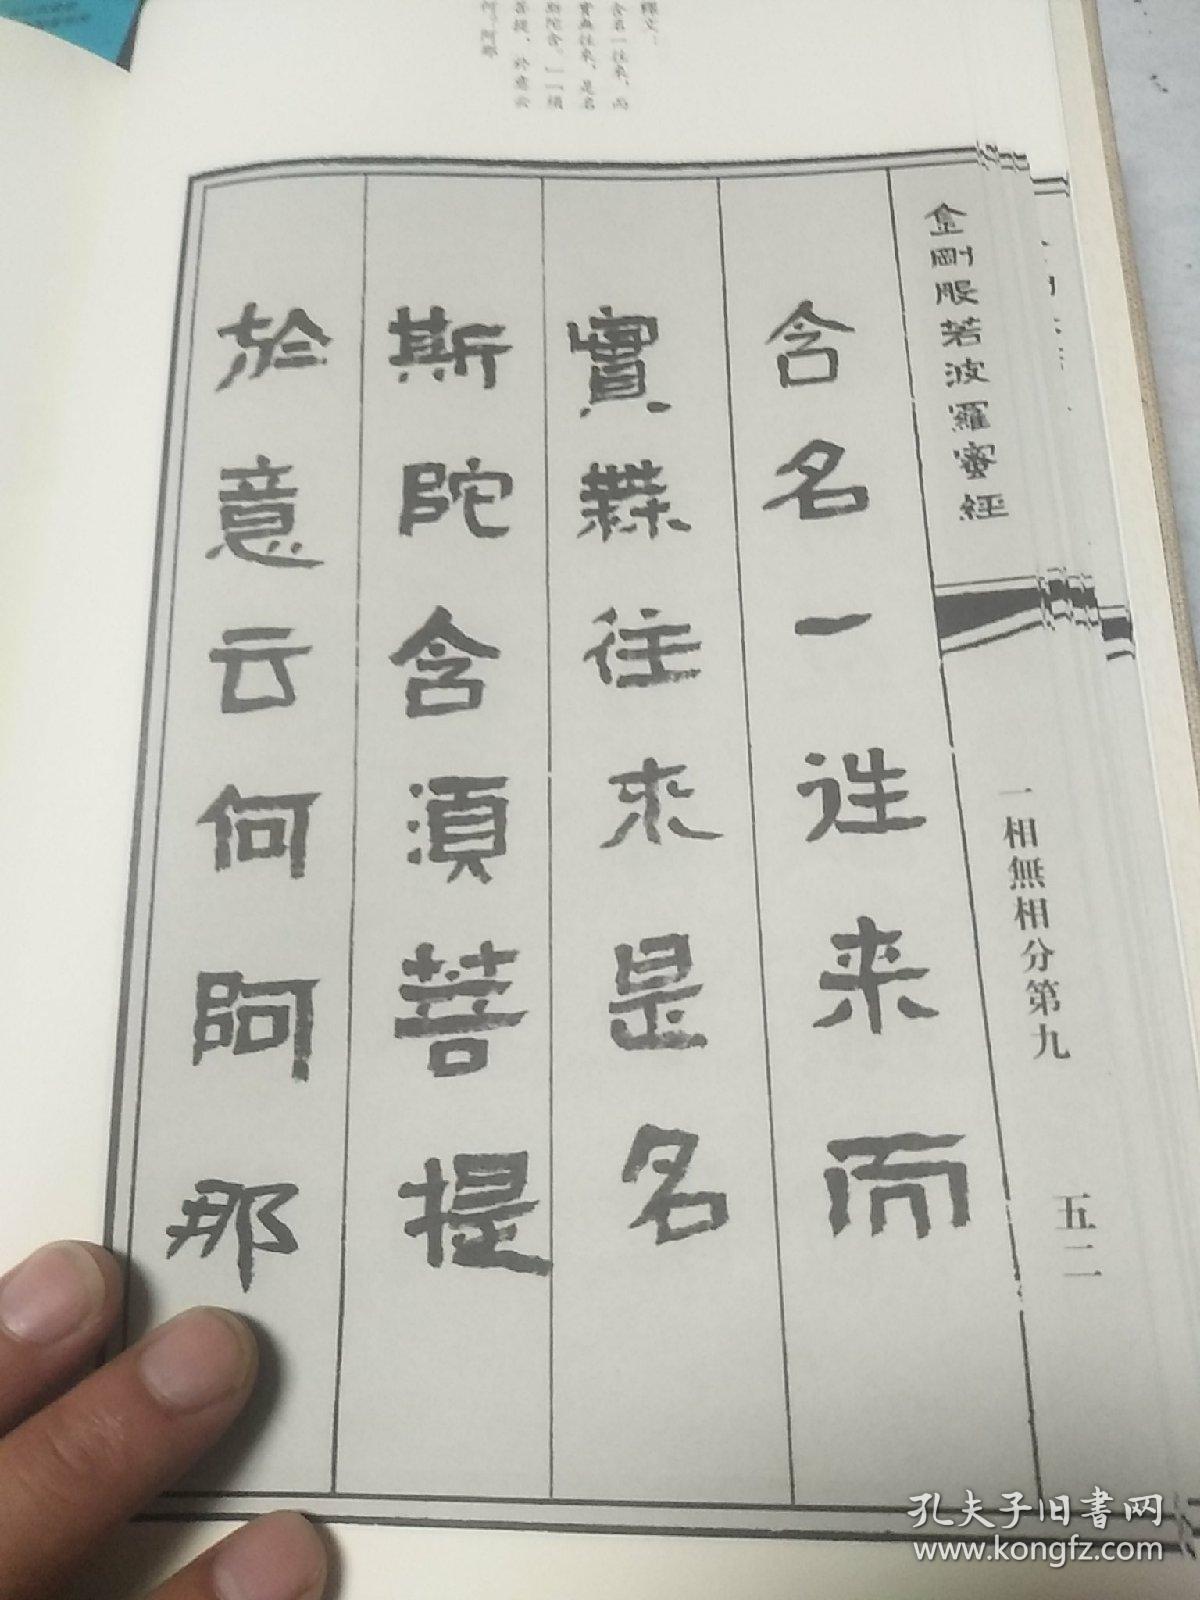 釋文：
含名一往来，而
實無往来，是名
斯陀含。」「須
菩提，於意云
何？阿那
金剛般若波羅蜜經
一相無相分第九
五二
含名一往来而
實無往来是名
斯陀含須菩提
於意云何阿那
孔夫子旧书网
www.kongfz.com